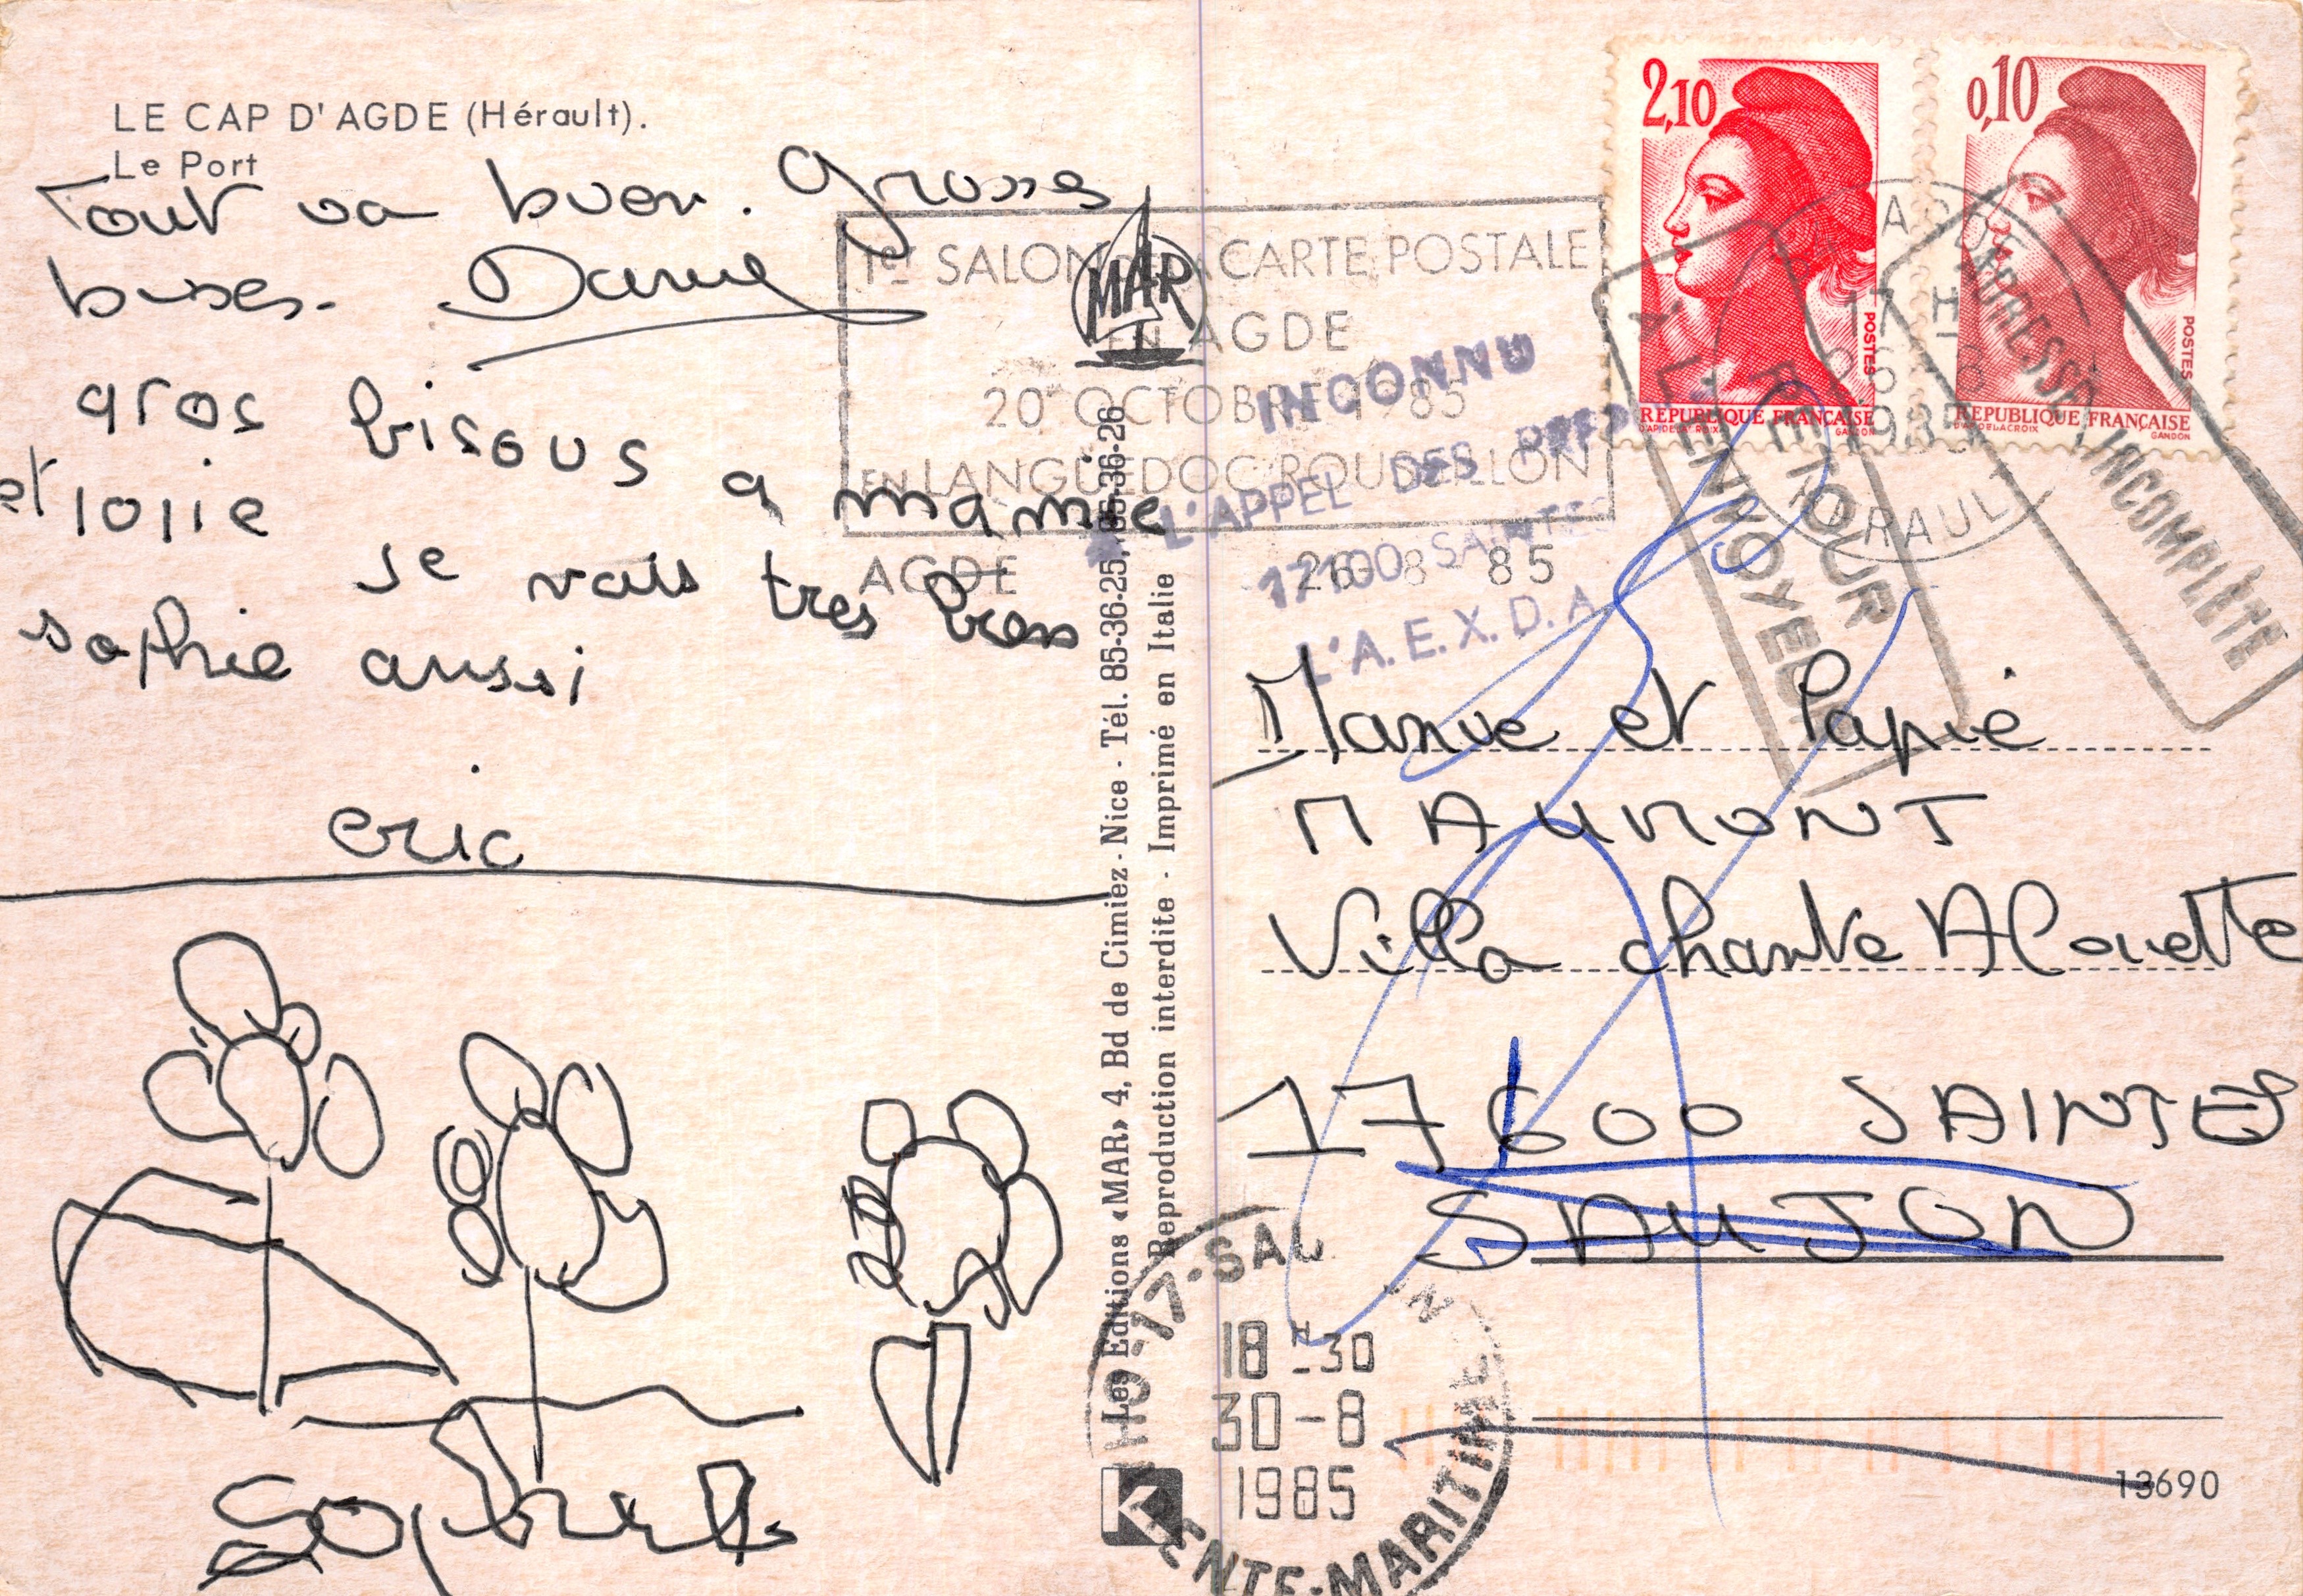 LE CAP D'AGDE (Hérault).
Le Port
Tout va bien. Grosses
bises. Danie
gros bisous a mamie
et papie
je vais tres bien
sophie aussi
eric
Sophie
Les Editions «MAR» 4, Bd de Cimiez - Nice - Tél. 85-36-25, 85-36-26
Reproduction interdite - Imprimé en Italie
MAR
K
1er SALON DE LA CARTE POSTALE
EN AGDE
20 OCTOBRE 1985
EN LANGUEDOC ROUSSILLON
AGDE
26-8 85
INCONNU
A L'APPEL DES PREP
17100 SAINTES
L'A.E.X.D.A
2,10
POSTES
REPUBLIQUE FRANÇAISE
GANDON
0,10
POSTES
REPUBLIQUE FRANÇAISE
D'AP DELACROIX
GANDON
17 H
1985
HERAULT
RETOUR
À L'ENVOYEUR
ADRESSE INCOMPLÈTE
Mamie et Papie
MAUMONT
Villa chante Alouette
17600 SAINTES
SAUJON
17-SAUJON
18 H-30
30-8
1985
CHARENTE-MARITIME
13690